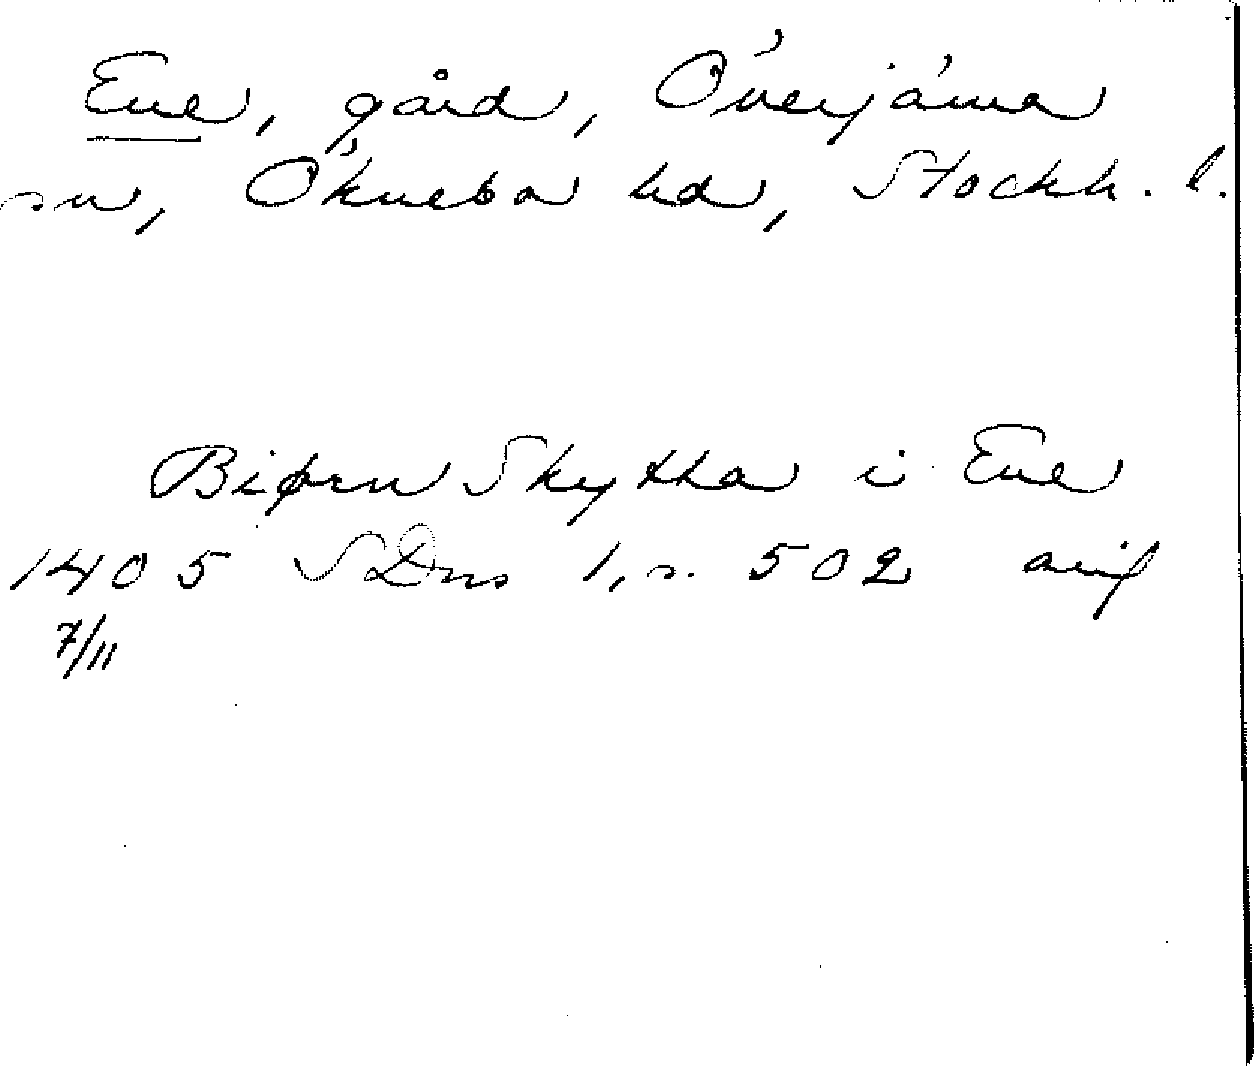 Ene, gård, Överjärna
sn, Öknebo hd, Stockh. l.
Biørn Skytta i Ene
1405 SDns 1, s. 502 avif
7/11